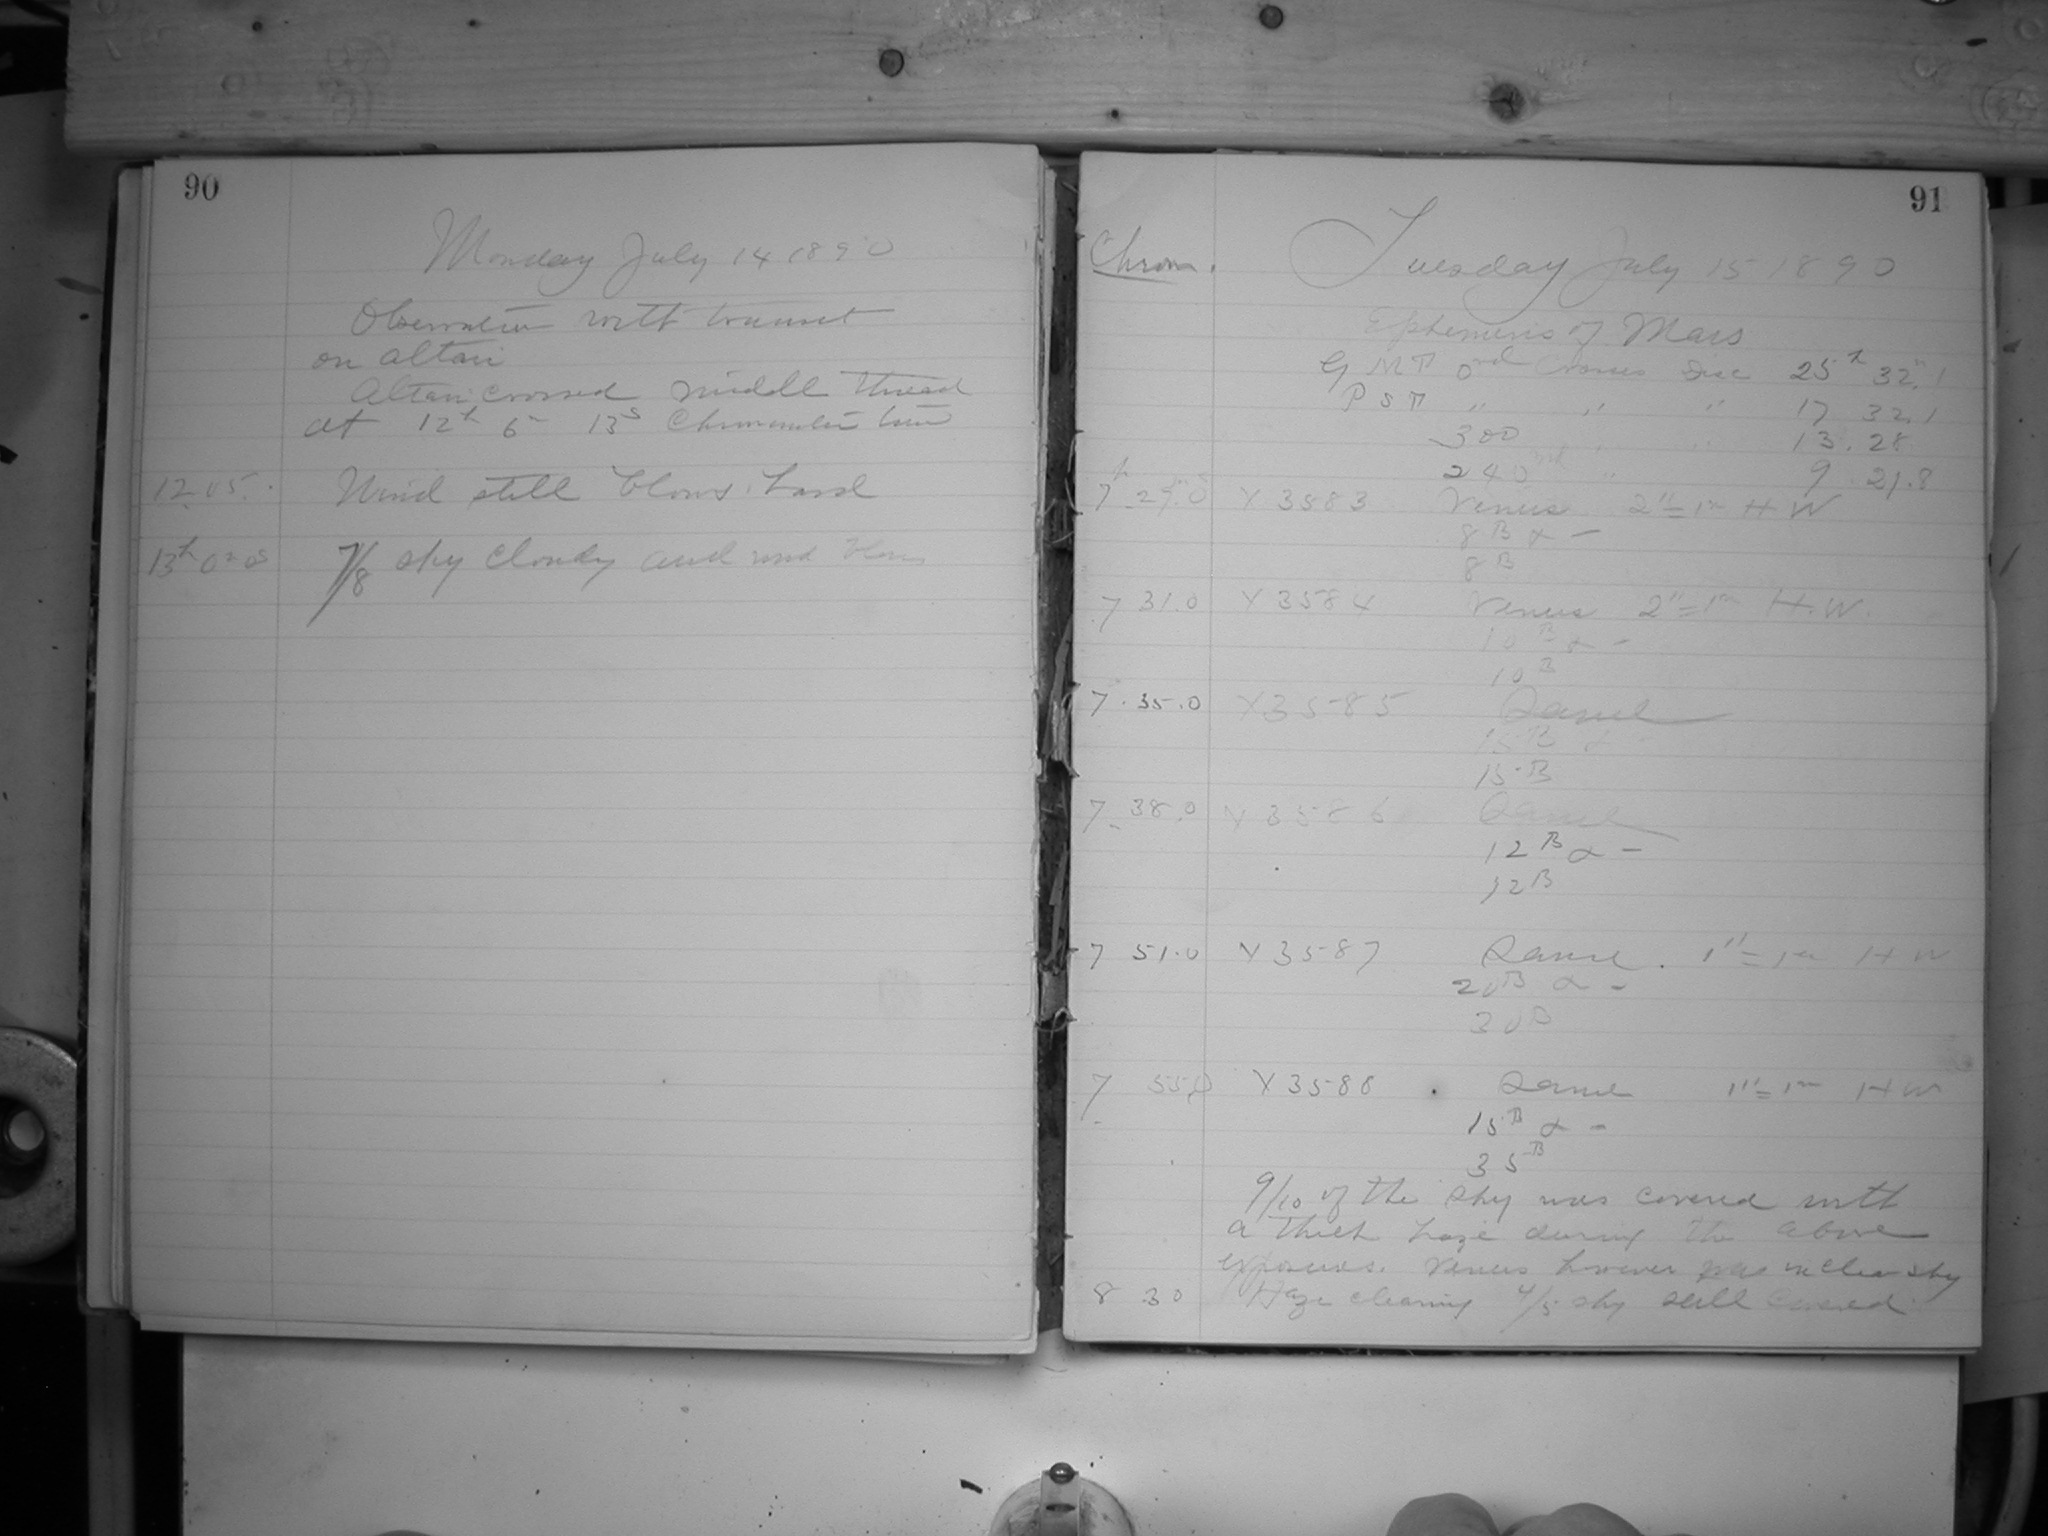 90
Monday July 14 1890
Observation with transit
on altair
Altair crossed middle thread
at 12h 6m 13s Chronometer time
12 05. Wind still blows hard
13h 0m 0s 7/8 sky cloudy and wind blows
91
Chron. Tuesday July 15 1890
Ephemeris of Mars
G M T 0rd Crosses Disc 25h 32m.1
P S T " " " 17 32.1
300 " " 13. 28
240 " 9 21.8
7h 29.0 Y 3583 Venus 2"=1m H W
8B α -
8B
7 31.0 Y 3584 Venus 2"=1m H.W.
10B α -
10B
7.35.0 Y 3585 Same
15B α -
15B
7 38.0 Y 3586 Same
12B α -
12B
7 51.0 Y 3587 Same. 1"=1m H W
20B α -
30B
7 55.0 Y 3588 Same 1"=1m H W
15B α -
35B
9/10 of the sky was covered with
a thick haze during the above
exposures. Venus however was in clear sky
8 30 Haze clearing 4/5 sky still covered